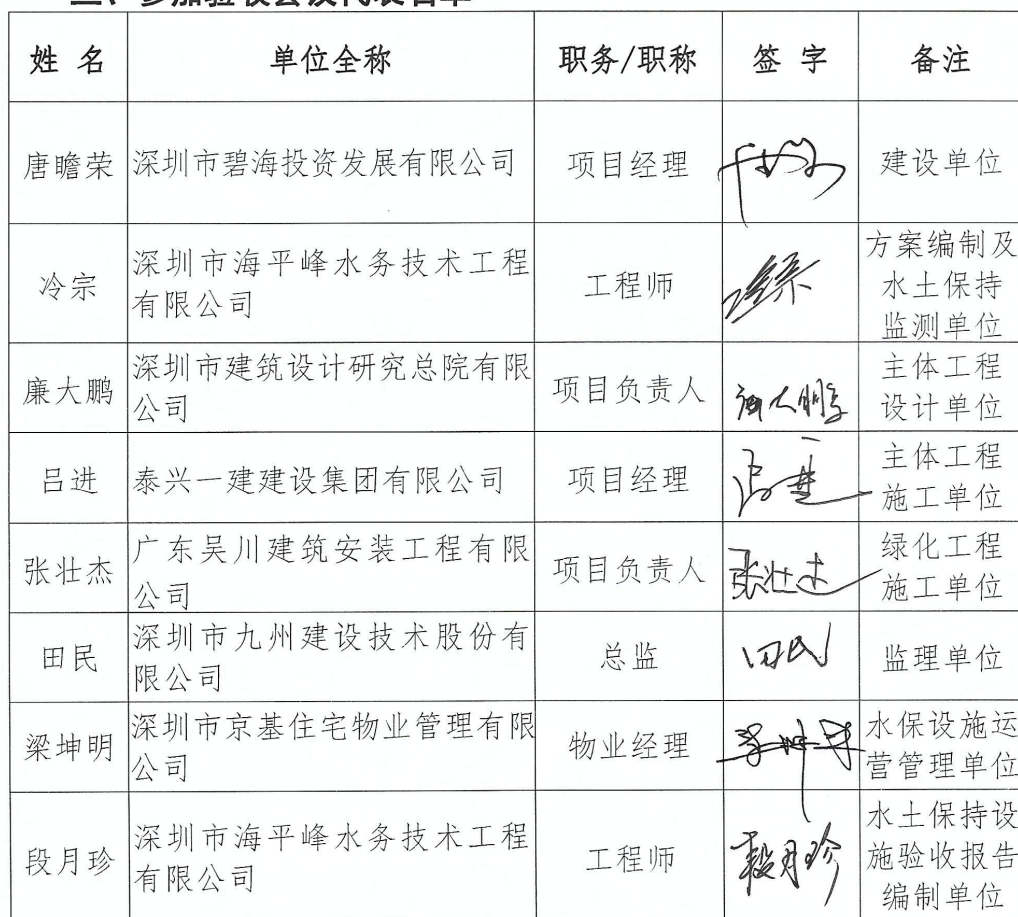 三、参加验收会议代表名单
姓 名 单位全称 职务/职称 签 字 备注
唐瞻荣 深圳市碧海投资发展有限公司 项目经理 建设单位
冷宗 深圳市海平峰水务技术工程
有限公司 工程师 冷宗 方案编制及
水土保持
监测单位
廉大鹏 深圳市建筑设计研究总院有限
公司 项目负责人 廉大鹏 主体工程
设计单位
吕进 泰兴一建建设集团有限公司 项目经理 吕进 主体工程
施工单位
张壮杰 广东吴川建筑安装工程有限
公司 项目负责人 张壮杰 绿化工程
施工单位
田民 深圳市九州建设技术股份有
限公司 总监 田民 监理单位
梁坤明 深圳市京基住宅物业管理有限
公司 物业经理 水保设施运
营管理单位
段月珍 深圳市海平峰水务技术工程
有限公司 工程师 段月珍 水土保持设
施验收报告
编制单位